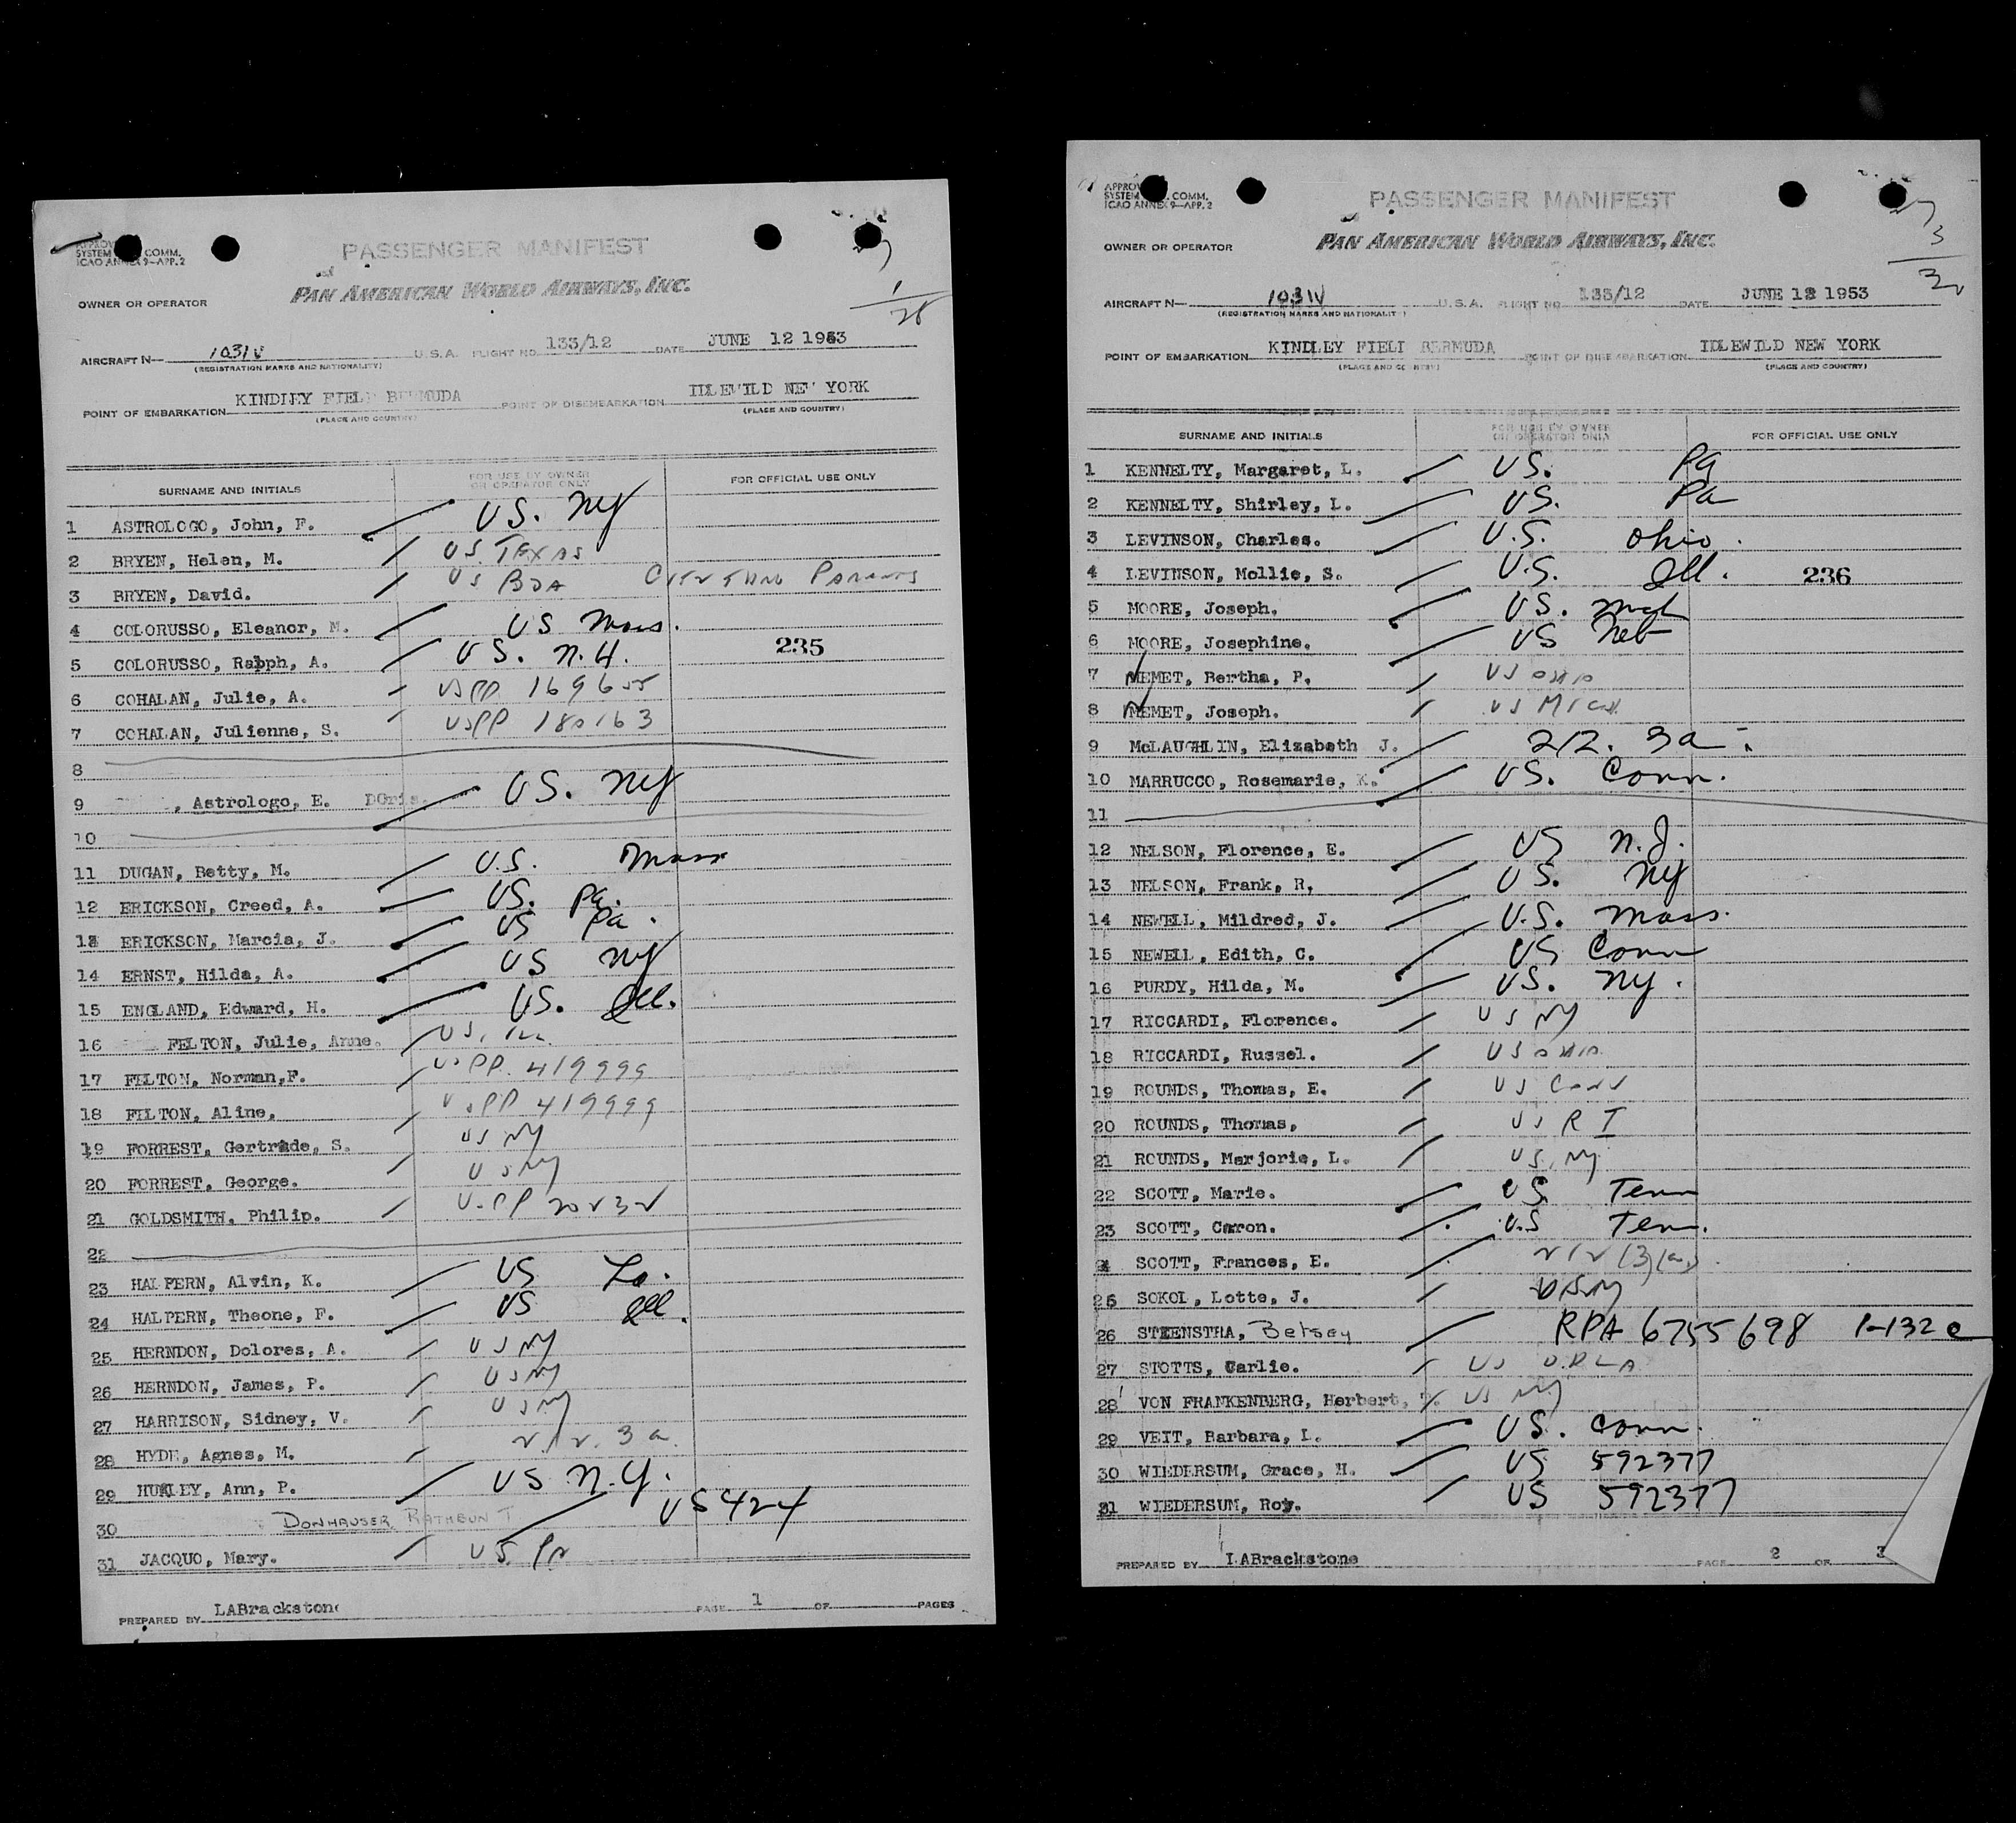 APPROV
SYSTEM COMM.
ICAO ANNEX 9—APP. 2
PASSENGER MANIFEST
PAN AMERICAN WORLD AIRWAYS, INC.
OWNER OR OPERATOR
1
28
AIRCRAFT N— 1031V U.S.A. FLIGHT NO. 133/12 DATE JUNE 12 1953
(REGISTRATION MARKS AND NATIONALITY)
POINT OF EMBARKATION KINDLEY FIELD BERMUDA POINT OF DISEMBARKATION IDLEWILD NEW YORK
(PLACE AND COUNTRY) (PLACE AND COUNTRY)
SURNAME AND INITIALS FOR USE BY OWNER OR OPERATOR ONLY FOR OFFICIAL USE ONLY
1 ASTROLOGO, John, F. US. NY
2 BRYEN, Helen, M. US. TEXAS
3 BRYEN, David. US BDA CIT THRU PARENTS
4 COLORUSSO, Eleanor, M. US Mass.
5 COLORUSSO, Ralph, A. US. N.H. 235
6 COHALAN, Julie, A. USPP 169655
7 COHALAN, Julienne, S. USPP 180163
8
9 , Astrologo, E. DOris US. NY
10
11 DUGAN, Betty, M. U.S. Mass
12 ERICKSON, Creed, A. US. Pa.
13 ERICKSON, Marcia, J. US Pa.
14 ERNST, Hilda, A. US NY
15 ENGLAND, Edward, H. US. Ill.
16 FELTON, Julie, Anne. US. Ill.
17 FELTON, Norman,F. USPP. 419999
18 FILTON, Aline, USPP 419999
19 FORREST, Gertrude, S. US NY
20 FORREST, George. US NY
21 GOLDSMITH, Philip. USPP 20232
22
23 HALPERN, Alvin, K. US La.
24 HALPERN, Theone, F. US Ill.
25 HERNDON, Dolores, A. US NY
26 HERNDON, James, P. US NY
27 HARRISON, Sidney, V. US NY
28 HYDE, Agnes, M. 212. 3a.
29 HURLEY, Ann, P. US N.Y.
30 DONHAUSER, RATHBUN T US 424
31 JACQUO, Mary. US. PA
PREPARED BY LABrackstone PAGE 1 OF PAGES
APPROV
SYSTEM COMM.
ICAO ANNEX 9—APP. 2
PASSENGER MANIFEST
OWNER OR OPERATOR PAN AMERICAN WORLD AIRWAYS, INC.
3
32
AIRCRAFT N— 1031V U.S.A. FLIGHT NO. 133/12 DATE JUNE 12 1953
(REGISTRATION MARKS AND NATIONALITY)
POINT OF EMBARKATION KINDLEY FIELD BERMUDA POINT OF DISEMBARKATION IDLEWILD NEW YORK
(PLACE AND COUNTRY) (PLACE AND COUNTRY)
SURNAME AND INITIALS FOR USE BY OWNER OR OPERATOR ONLY FOR OFFICIAL USE ONLY
1 KENNELTY, Margaret, L. US. Pa
2 KENNELTY, Shirley, L. US. Pa
3 LEVINSON, Charles. U.S. Ohio.
4 LEVINSON, Mollie, S. U.S. Ill. 236
5 MOORE, Joseph. US. Mich
6 MOORE, Josephine. US Neb
7 NEMET, Bertha, P. US OHIO
8 NEMET, Joseph. US MICH.
9 McLAUGHLIN, Elizabeth J. 212. 3a.
10 MARRUCCO, Rosemarie, K. US. Conn.
11
12 NELSON, Florence, E. US N.J.
13 NELSON, Frank, R. US. NY
14 NEWELL, Mildred, J. U.S. Mass.
15 NEWELL, Edith, C. US Conn
16 PURDY, Hilda, M. US. NY.
17 RICCARDI, Florence. US NY
18 RICCARDI, Russel. US OHIO.
19 ROUNDS, Thomas, E. US CONN
20 ROUNDS, Thomas, US R I
21 ROUNDS, Marjorie, L. US. NY
22 SCOTT, Marie. US Tenn
23 SCOTT, Caron. U.S Tenn.
24 SCOTT, Frances, E. 212 (3)(a)
25 SOKOL, Lotte, J. US NY
26 STEENSTRA, Betsey RPA 6755698 1-132 e
27 STOTTS, Carlie. US OKLA
28 VON FRANKENBERG, Herbert, US NY
29 VEIT, Barbara, L. US. Conn.
30 WIEDERSUM, Grace, H. US 592377
31 WIEDERSUM, Roy. US 592377
PREPARED BY LABrackstone PAGE 2 OF 3